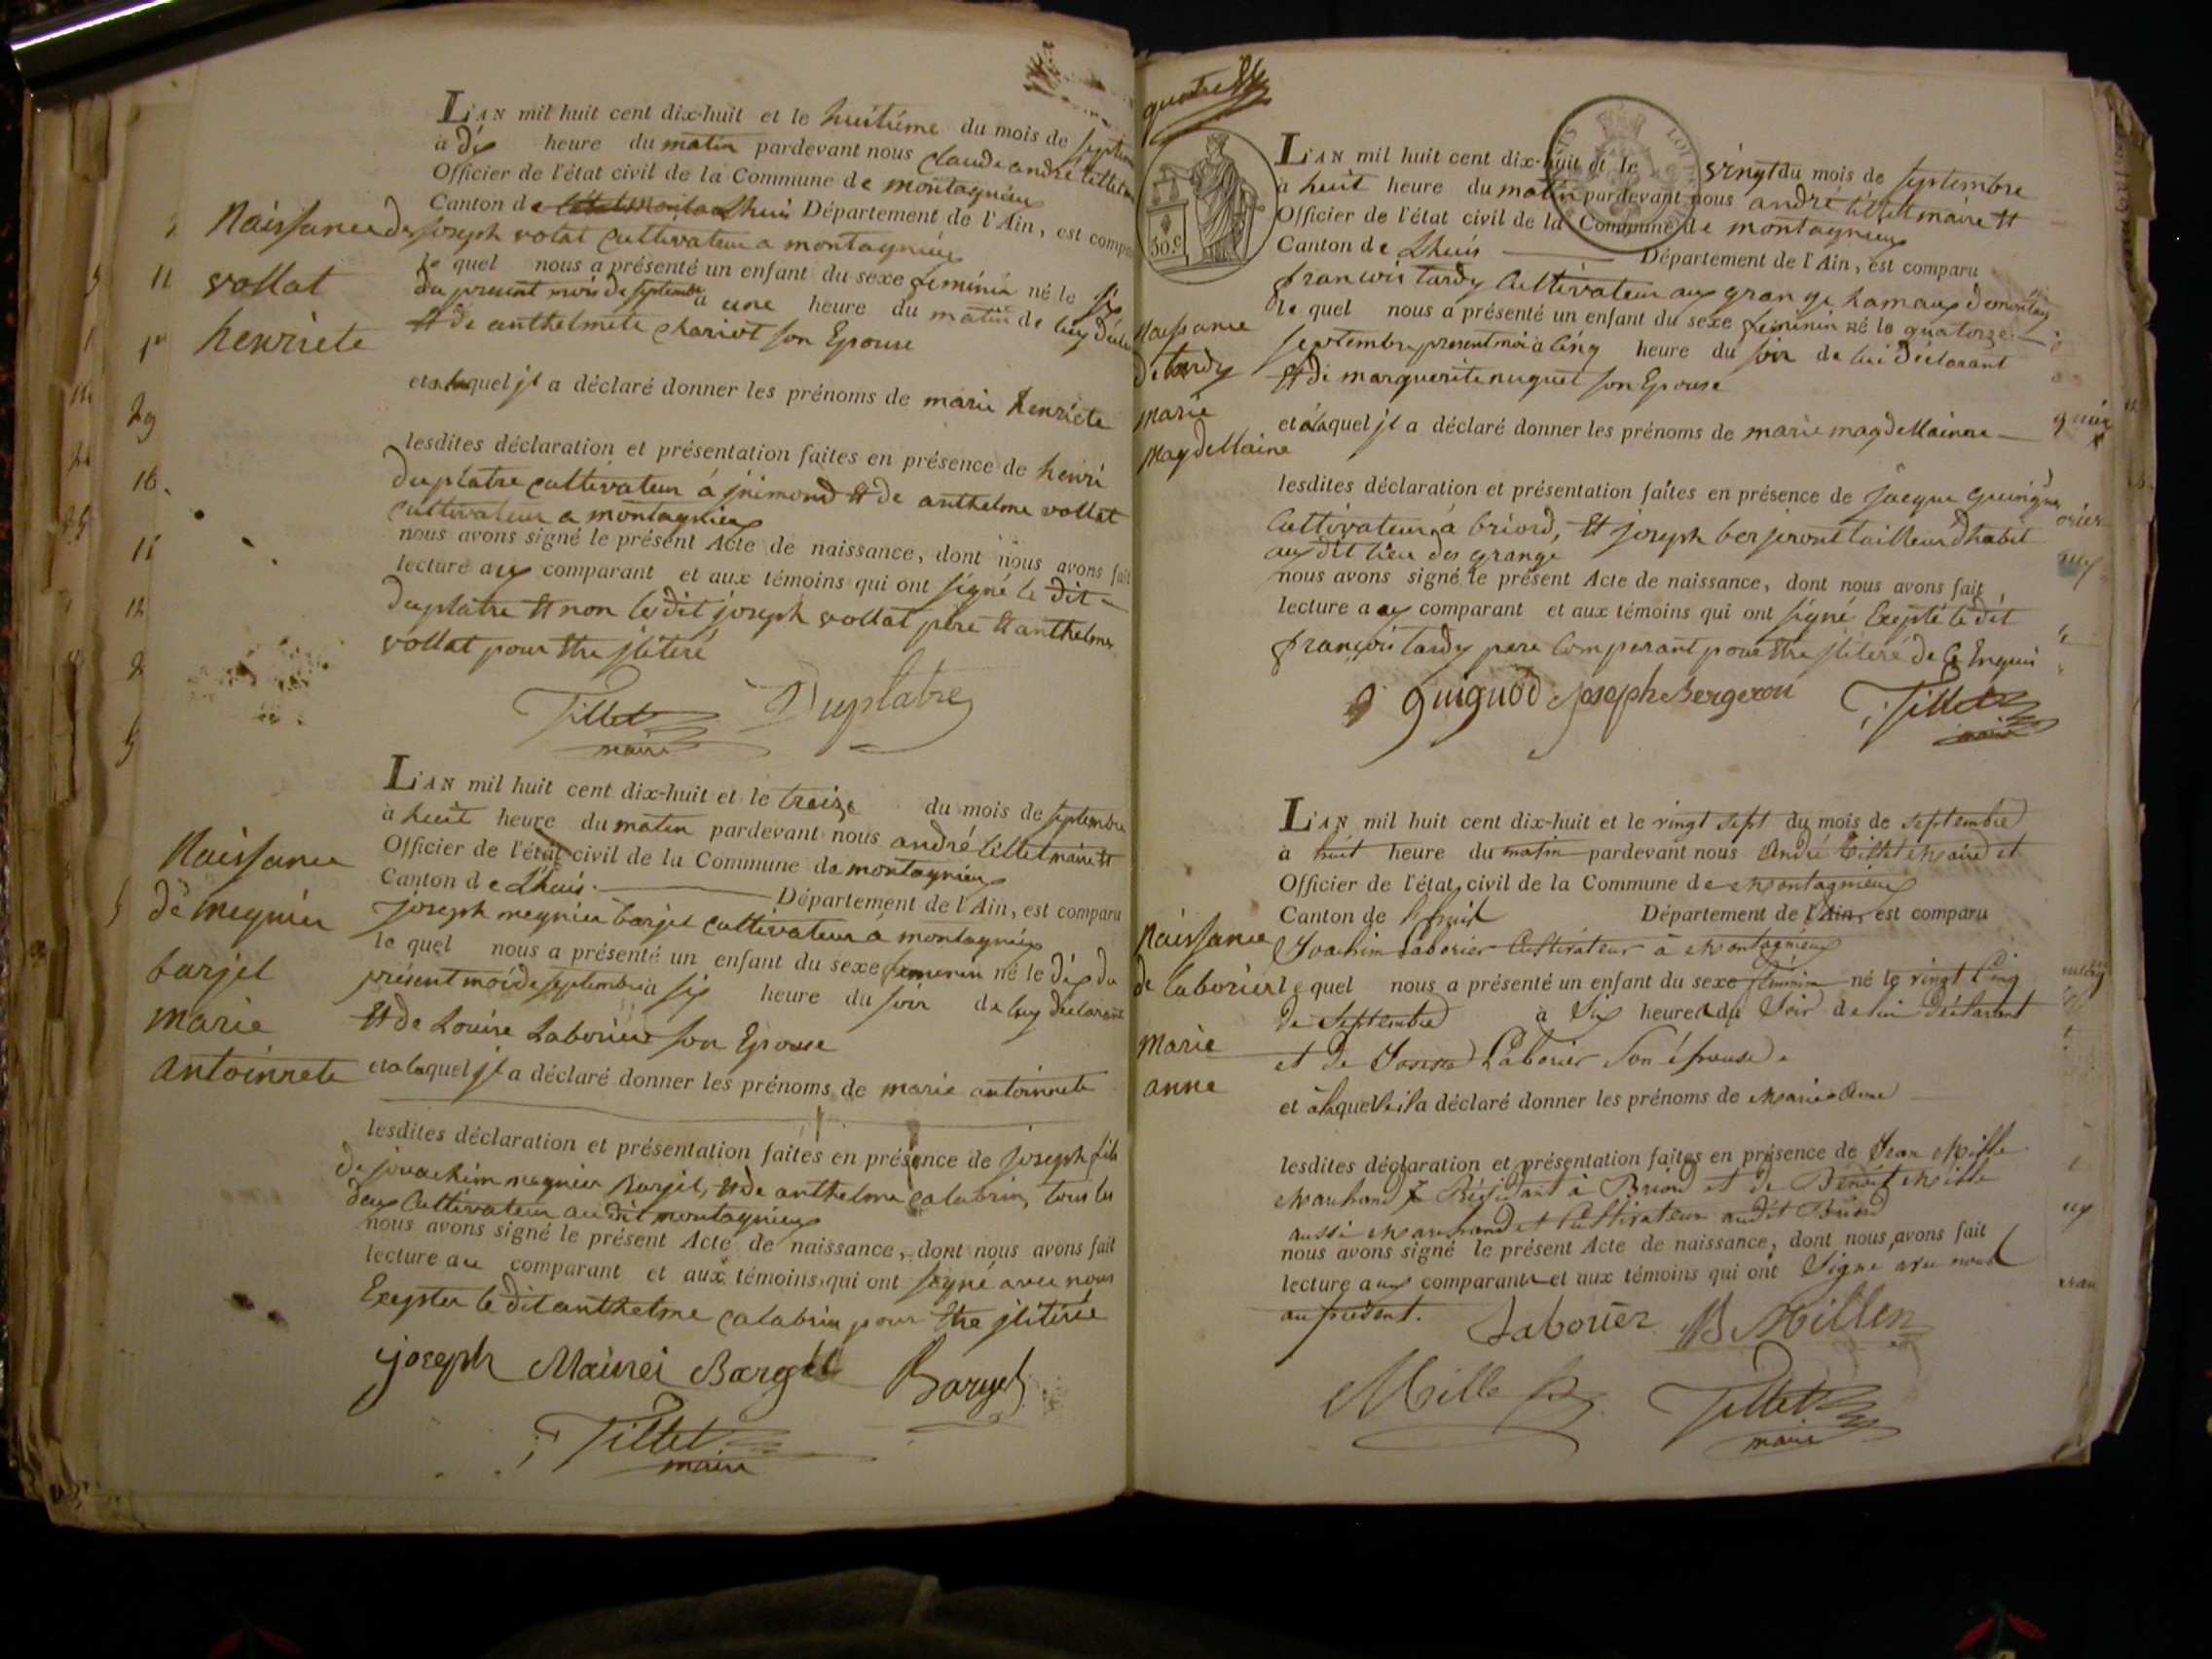 L'AN mil huit cent dix-huit et le huitiéme du mois de septem
à dix heure du matin pardevant nous claude andré tillet
Officier de l'état civil de la Commune de montagnieu
Canton de Lhuis Département de l'Ain, est comparu
joseph volat cultivateur a montagnieu
le quel nous a présenté un enfant du sexe feminin né le six
du present mois de septembre a une heure du matin de luy décla
et de anthelmete chariot son Epouse
et a laquel jl a déclaré donner les prénoms de marie henriete
lesdites déclaration et présentation faites en présence de henri
duplatre cultivateur á jnimond et de anthelme vollat
cultivateur a montagnieu
nous avons signé le présent Acte de naissance, dont nous avons fait
lecture aux comparant et aux témoins qui ont signé le dit
duplatre et non lesdit joseph vollat pere et anthelme
vollat pour etre jlitéré
Tillet Duplatre
maire
Naissance de
vollat
henriete
L'AN mil huit cent dix-huit et le treize du mois de septembre
à huit heure du matin pardevant nous andré tillet maire et
Officier de l'état civil de la Commune de montagnieu
Canton de Lhuis Département de l'Ain, est comparu
joseph meynier barjel cultivateur á montagnieu
le quel nous a présenté un enfant du sexe feminin né le dix du
présent moi de septembre à six heure du soir de luy déclarant
et de Louise Laborier son Epouse
et a laquel jl a déclaré donner les prénoms de marie antoinnete
lesdites déclaration et présentation faites en présence de joseph fils
de jouachim meynier Barjel, et de anthelme calabrin, tous les
deux Cultivateur au dit montagnieu
nous avons signé le présent Acte de naissance, dont nous avons fait
lecture au comparant et aux témoins qui ont signé avec nous
Exepter le dit anthelme calabrin pour etre jlitérée
joseph Mainei Bargel Bargel
Tillet
maire
Naissance
de meynier
barjel
marie
antoinnete
30.c
L'AN mil huit cent dix-huit et le vingt du mois de septembre
à huit heure du matin pardevant nous andré tillet maire et
Officier de l'état civil de la Commune de montagnieu
Canton de Lhuis Département de l'Ain, est comparu
francois tardy Cultivateur aux grange hamaux de montag
le quel nous a présenté un enfant du sexe feminin né le quatorze
septembre present moi à cinq heure du soir de lui déclarant
et de marguerite nuguet son Epouse
et á laquel jl a déclaré donner les prénoms de marie magdellainne
lesdites déclaration et présentation faites en présence de jacque
Cultivateur á briord, et joseph berjeront tailleur dhabit
au dit lieu des grange
nous avons signé le présent Acte de naissance, dont nous avons fait
lecture a aux comparant et aux témoins qui ont signé Exepté le dit
françois tardy pere comparant pour etre jlitéré de ce Enquis
guignod joseph Bergeron Tillet
maire
Naissance
de tardy
marie
magdellaine
L'AN mil huit cent dix-huit et le vingt sept du mois de septembre
à huit heure du matin pardevant nous André Tillet Maire et
Officier de l'état civil de la Commune de Montagnieu
Canton de Lhuis Département de l'Ain, est comparu
Joachim Laborier Cultivateur à Montagnieu
le quel nous a présenté un enfant du sexe féminin né le vingt cinq
de Septembre à Six heures du Soir de lui déclarant
et de Laborier son épouse
et à laquelle il a déclaré donner les prénoms de Marie Anne
lesdites déclaration et présentation faites en présence de Jean Mille
Marchand Résidant à Briord et de Benoit Mille
aussi Marchand et Cultivateur audit Briord
nous avons signé le présent Acte de naissance, dont nous avons fait
lecture aux comparants et aux témoins qui ont Signé avec nous
au présent.
Laborier B Millen
Mille Tillet
maire
Naissance
de laborier
marie
anne